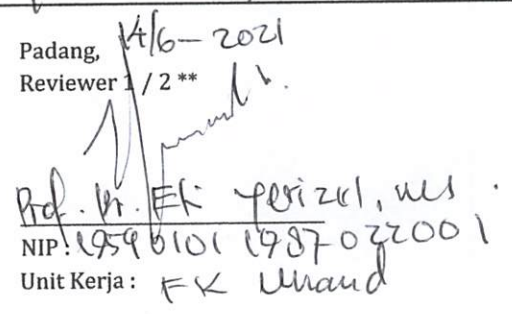 Padang, 14/6 - 2021
Reviewer 1 / 2 **
Prof. Dr. Eti Yerizel, MS.
NIP : 19590101 1987022001
Unit Kerja : FK Unand